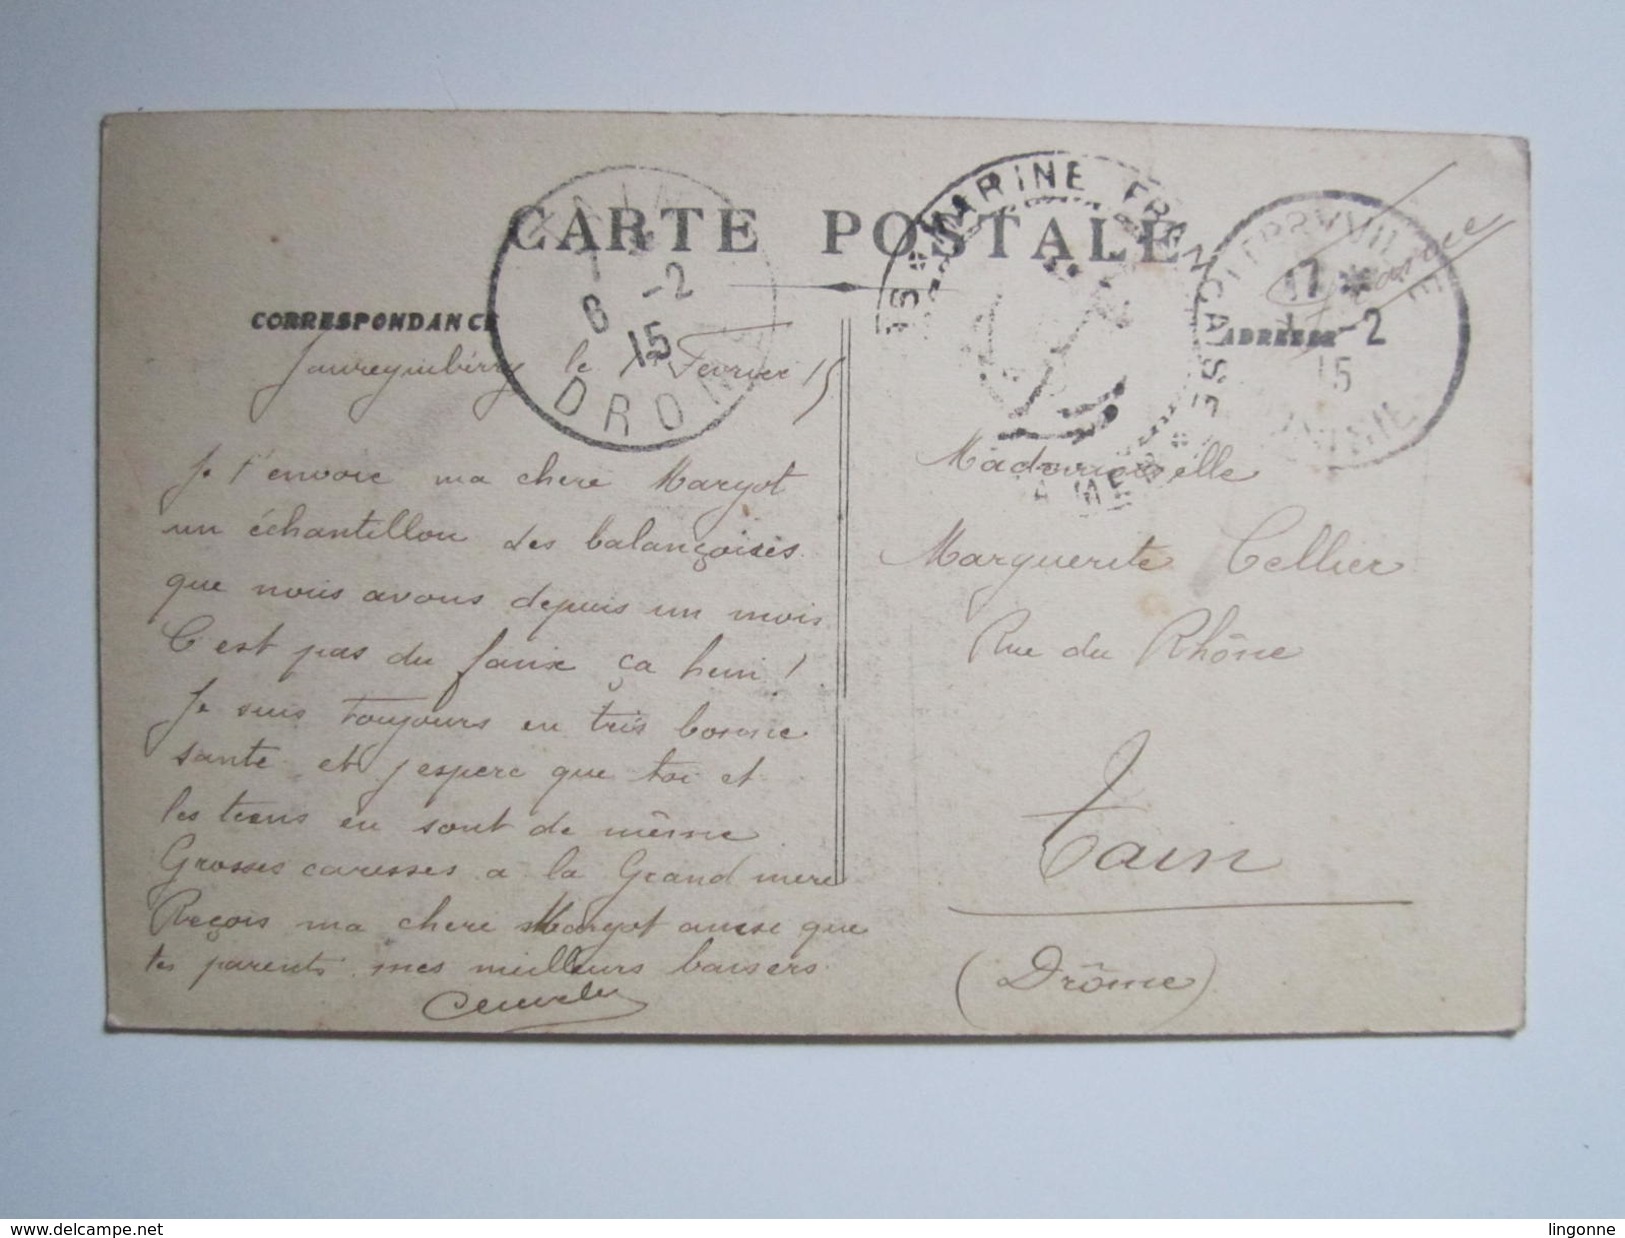 CARTE POSTALE
CORRESPONDANCE
ADRESSE
TAIN
6 -2
15
DROME
MARINE FRANÇAISE
FERRYVILLE
17 *
1 -2
15
TUNISIE
Franchise
Jaureguiberry le 1er Fevrier 15
Je t'envoie ma chere Margot
un échantillon des balançoires
que nous avons depuis un mois
C'est pas du faux ça hein !
Je suis toujours en très bonne
santé et j'espere que toi et
les tiens en sont de même
Grosses caresses a la Grand mere
Reçois ma chere Margot ainsi que
tes parents mes meilleurs baisers
Mademoiselle
Marguerite Cellier
Rue du Rhône
Tain
(Drôme)
lingonne